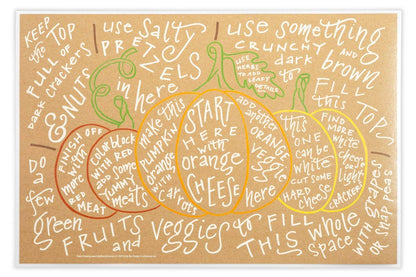 KEEP
the TOP
FULL OF
DARK CRACKERS
& NUTS
use SALTY
PRETZELS
in here
use something
CRUNCHY AND
dark to brown
FILL
this TOPS
USE
HERBS
TO ADD
LEAFY
DETAILS
FINISH OFF
with
more
RED
MEAT
color block
WITH RED
and some
YUMMY
meats
make this
PUMPKIN
ORANGE
with
carrots
START
HERE
with
orange
CHEESE
add another
ORANGE
veggie
here
this
ONE
can be
white
CUT SOME
HARD
cheese
FIND
MORE
WHITE
cheese
and
light
CRACKERS
DO
a
few
green
FRUITS
and
veggies to
FILL
THIS whole
space
WITH grapes
OR snap peas